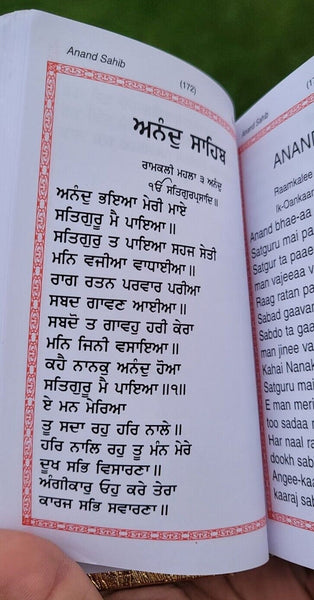 Anand Sahib
(172)
ਅਨੰਦੁ ਸਾਹਿਬ
ਰਾਮਕਲੀ ਮਹਲਾ ੩ ਅਨੰਦੁ
ੴ ਸਤਿਗੁਰਪ੍ਰਸਾਦਿ॥
ਅਨੰਦੁ ਭਇਆ ਮੇਰੀ ਮਾਏ
ਸਤਿਗੁਰੂ ਮੈ ਪਾਇਆ॥
ਸਤਿਗੁਰੁ ਤ ਪਾਇਆ ਸਹਜ ਸੇਤੀ
ਮਨਿ ਵਜੀਆ ਵਾਧਾਈਆ॥
ਰਾਗ ਰਤਨ ਪਰਵਾਰ ਪਰੀਆ
ਸਬਦ ਗਾਵਣ ਆਈਆ॥
ਸਬਦੋ ਤ ਗਾਵਹੁ ਹਰੀ ਕੇਰਾ
ਮਨਿ ਜਿਨੀ ਵਸਾਇਆ॥
ਕਹੈ ਨਾਨਕੁ ਅਨੰਦੁ ਹੋਆ
ਸਤਿਗੁਰੂ ਮੈ ਪਾਇਆ॥੧॥
ਏ ਮਨ ਮੇਰਿਆ
ਤੂ ਸਦਾ ਰਹੁ ਹਰਿ ਨਾਲੇ॥
ਹਰਿ ਨਾਲਿ ਰਹੁ ਤੂ ਮੰਨ ਮੇਰੇ
ਦੂਖ ਸਭਿ ਵਿਸਾਰਣਾ॥
ਅੰਗੀਕਾਰੁ ਓਹੁ ਕਰੇ ਤੇਰਾ
ਕਾਰਜ ਸਭਿ ਸਵਾਰਣਾ॥
Anand Sahib
ANAND
Raamkalee
Ik-Oankaar
Anand bhae-aa
Satguru mai pa
Satgur ta paae
man vajeeaa v
Raag ratan pa
Sabad gaavan
Sabdo ta gaav
man jinee vas
Kahai Nanak
Satguru mai
E man meri
too sadaa
Har naal ra
dookh sab
Angee-kaa
kaaraj sab